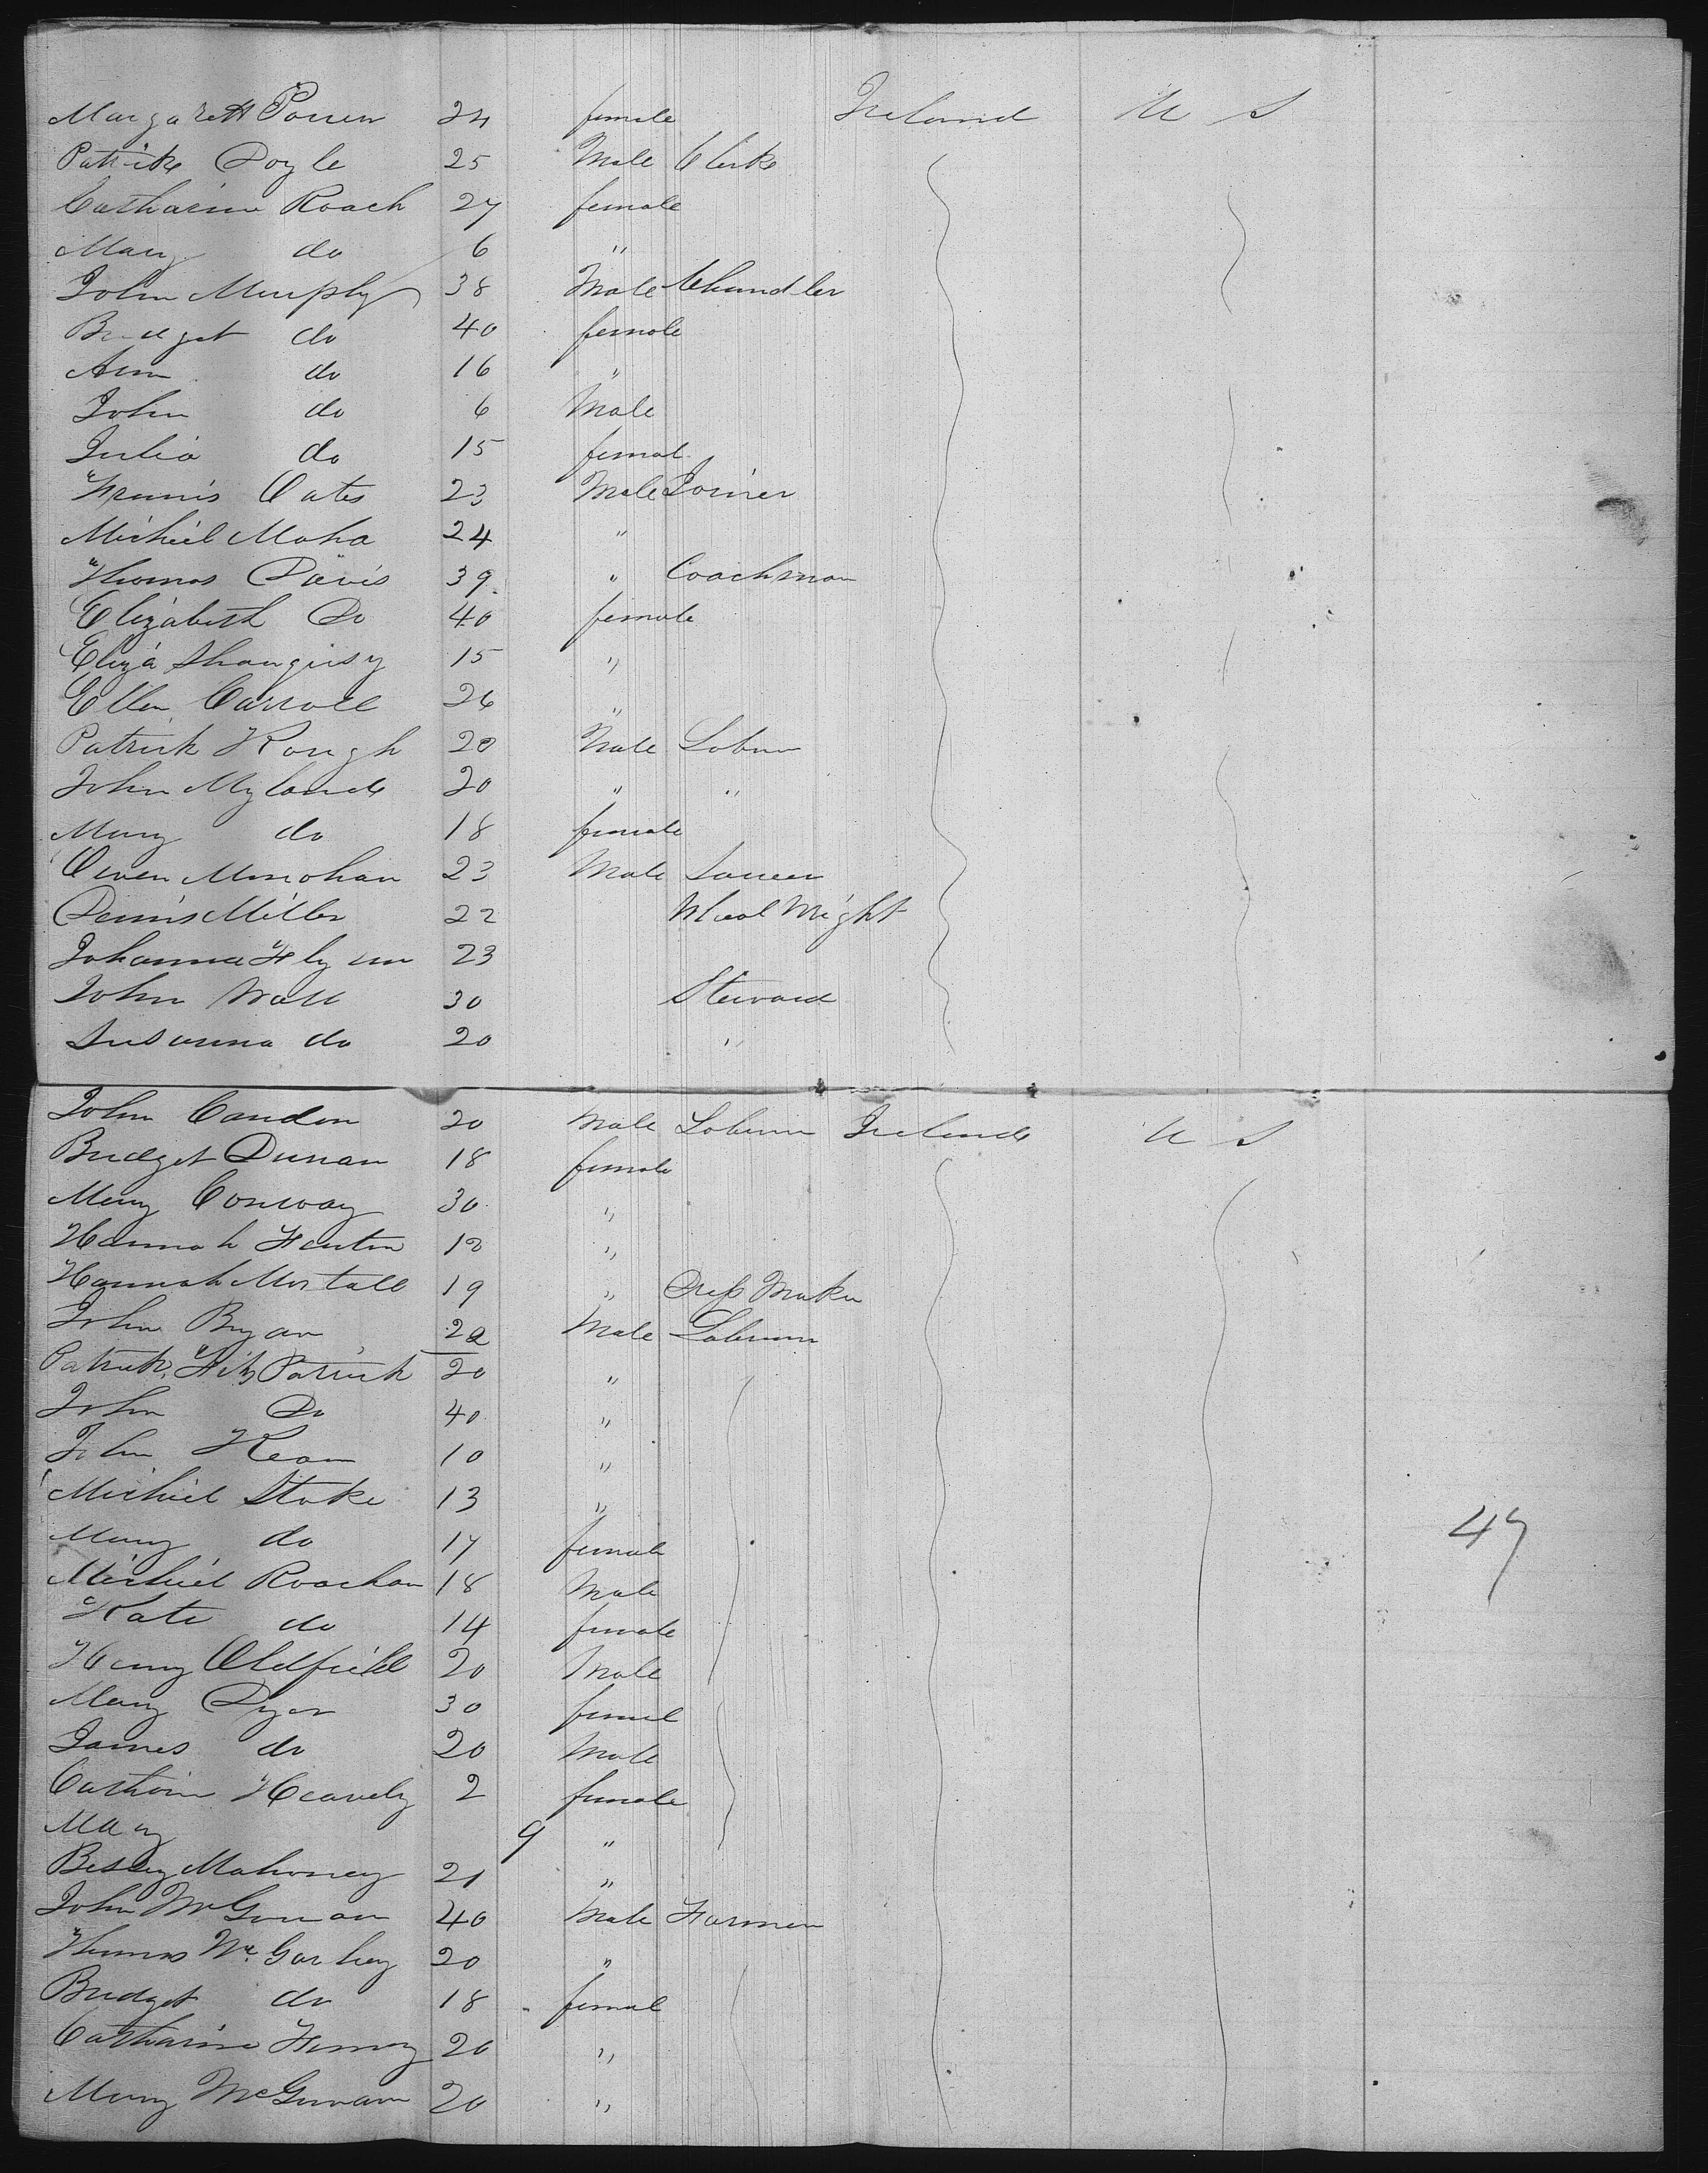 Margarett Power 24 female Ireland U S
Patrick Doyle 25 Male Clerk
Catharine Roach 27 female
Mary do 6 "
John Murphy 38 Male Chandler
Bridget do 40 female
Ann do 16 "
John do 6 Male
Julia do 15 femal
Francis Oates 23 Male Joiner
Michiel Maha 24 "
Thomas Davis 39 " Coachman
Elizabeth Do 40 female
Eliza 15 "
Ellen Carroll 26 "
Patrick Kough 20 Male Labur
John Myland 20 " "
Mary do 18 female
Owen Monohan 23 Male
Dennis Miller 22 Wheel Wright
Johanna Flynn 23
John Wall 30 Steward
Susanna do 20 "
John Condon 20 Male Laburer Ireland U S
Bridget Dunan 18 female
Mary Conway 30 "
Hannah Fenton 18 "
Hannah Mortall 19 " Dress Maker
John Bryan 20 Male Laburer
Patrick Fitz Patrick 20 "
John Do 40 "
John Kean 10 "
Michiel Stoke 13 "
Mary do 17 female
Michiel Roachan 18 Male
Kate do 14 female
Henry Oldfield 20 Male
Mary Dyer 30 femal
James do 20 Male
Catharin Heavely 2 female
Mary 9 "
Bessey Mahoney 21 "
John McGowan 40 Male Farmer
Thomas Mc 20 "
Bridget do 18 femal
Catharine 20 "
Mary McGowan 20 "
47